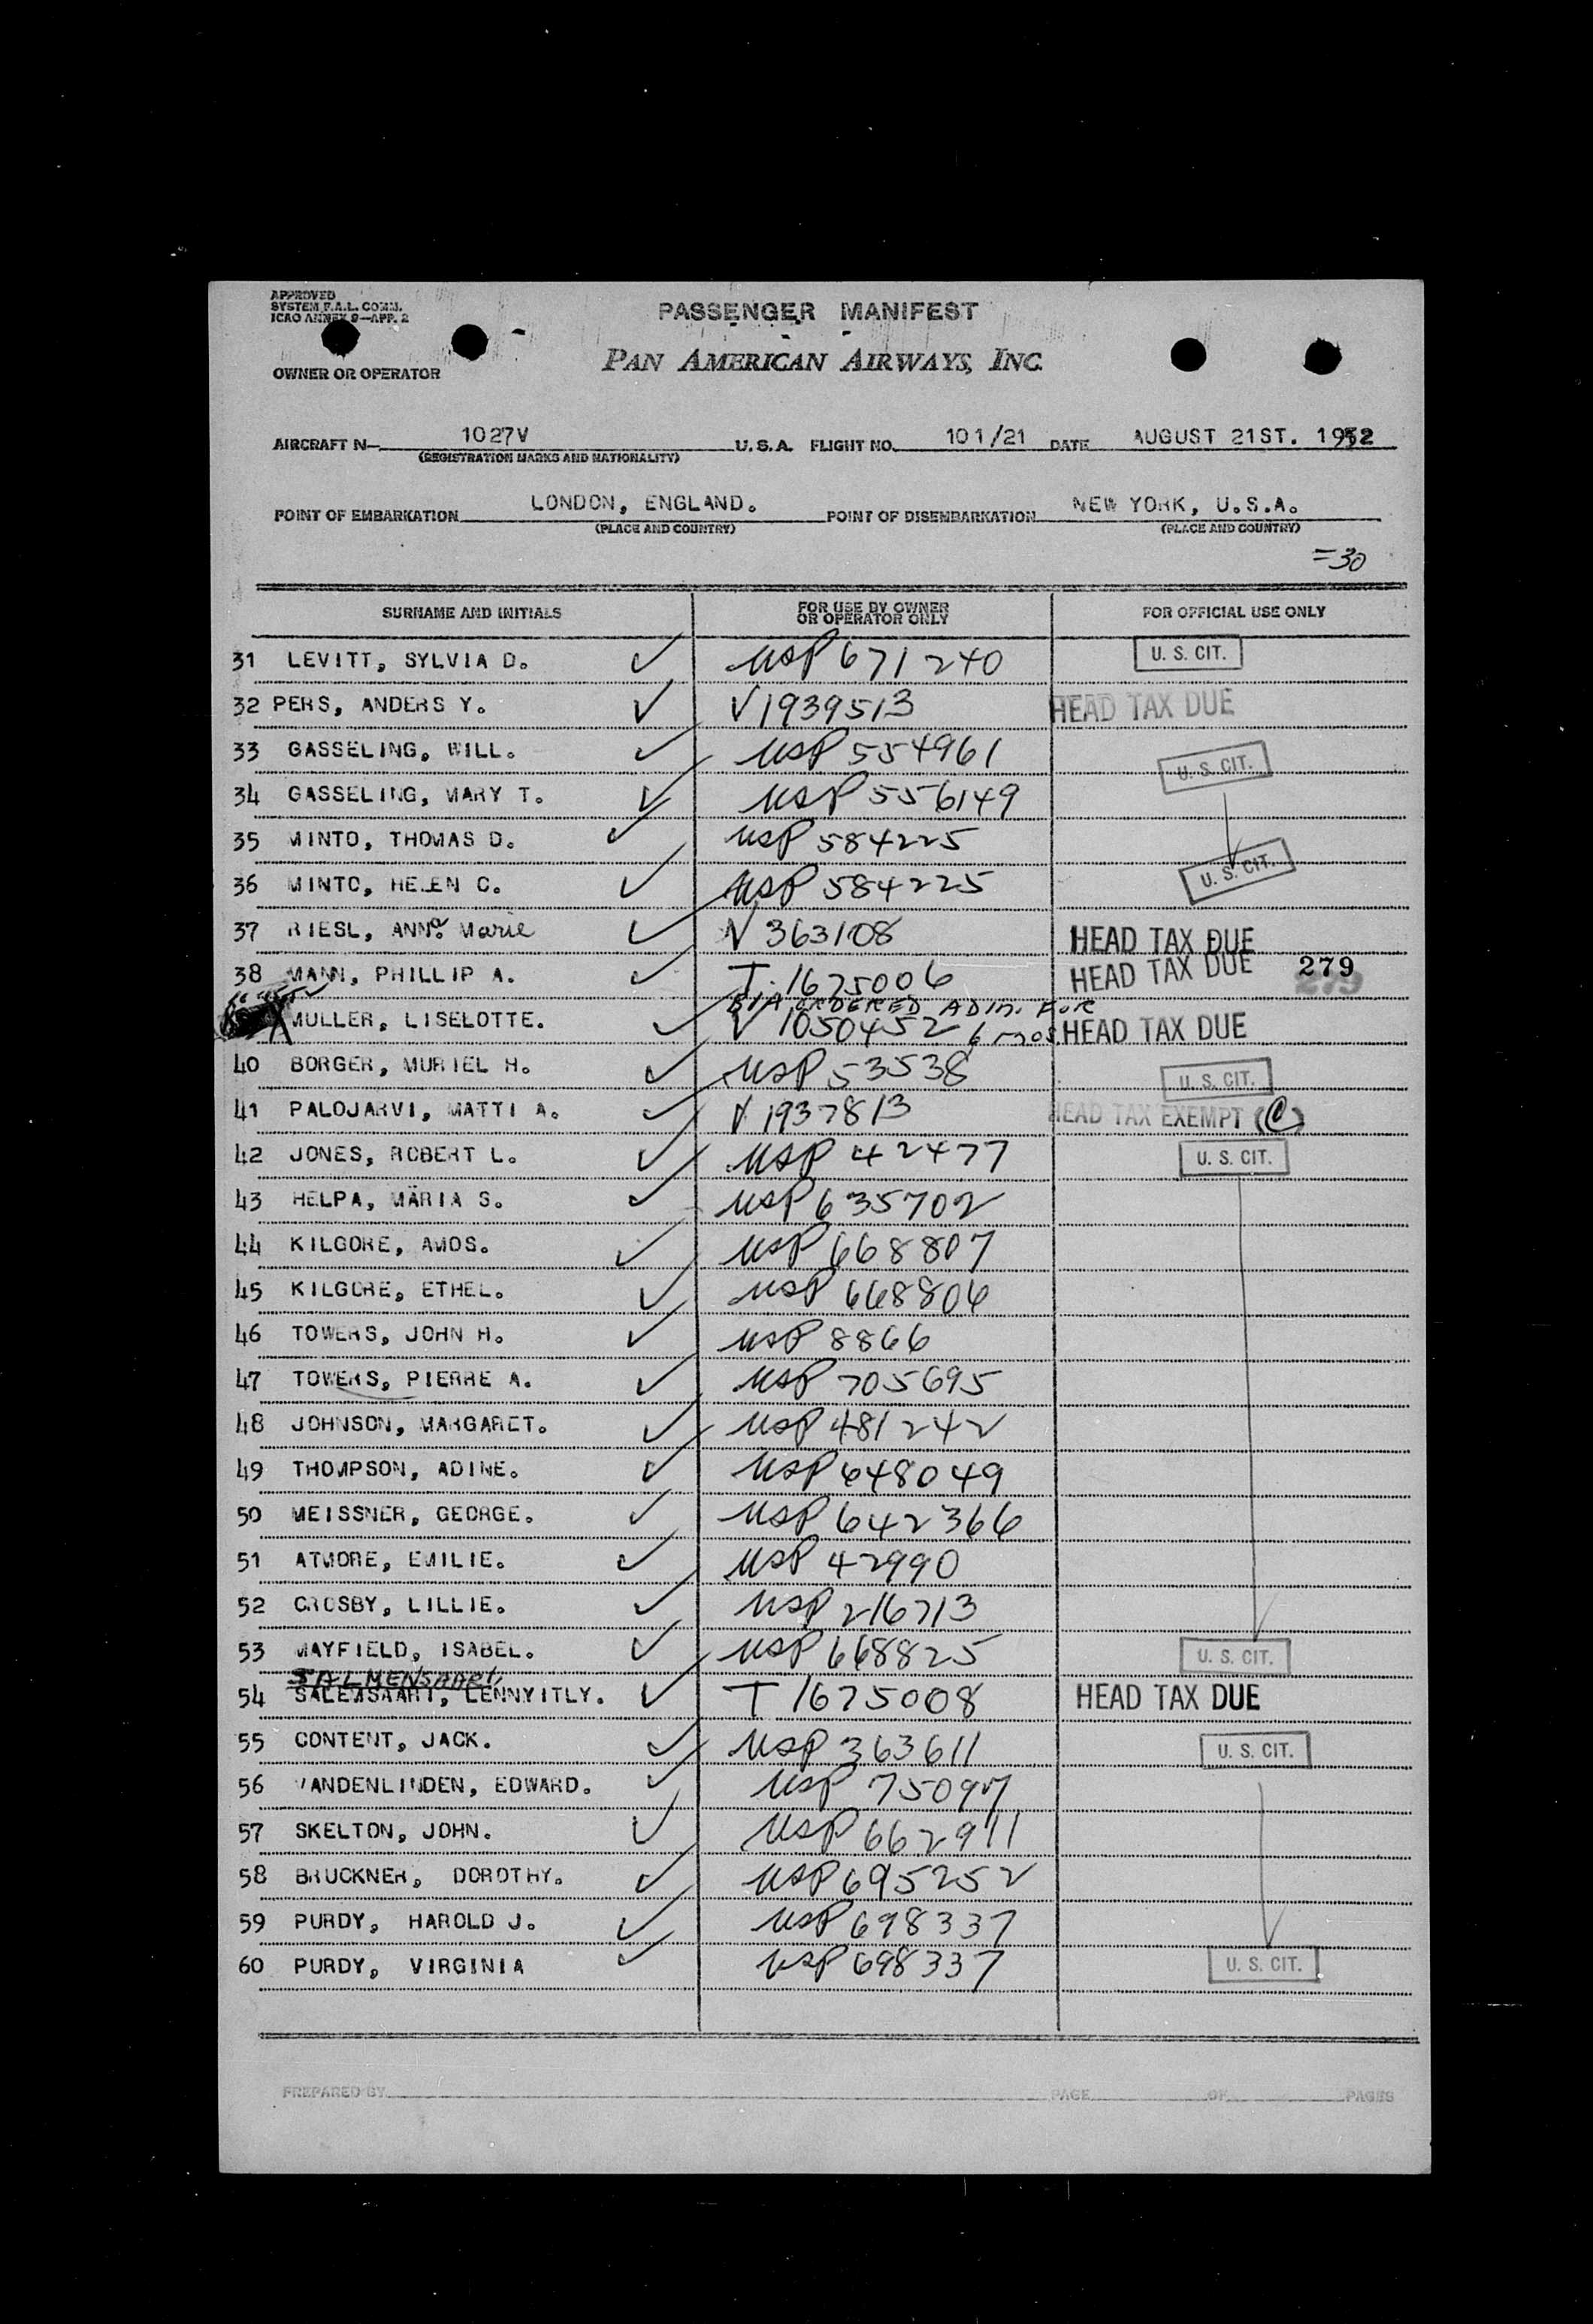 APPROVED
SYSTEM F.A.L. COMM.
ICAO ANNEX 9—APP. 2
PASSENGER MANIFEST
OWNER OR OPERATOR
PAN AMERICAN AIRWAYS, INC.
AIRCRAFT N— 1027V U.S.A. FLIGHT NO. 101/21 DATE AUGUST 21ST. 1952
(REGISTRATION MARKS AND NATIONALITY)
POINT OF EMBARKATION LONDON, ENGLAND. POINT OF DISEMBARKATION NEW YORK, U.S.A.
(PLACE AND COUNTRY) (PLACE AND COUNTRY)
=30
SURNAME AND INITIALS FOR USE BY OWNER OR OPERATOR ONLY FOR OFFICIAL USE ONLY
31 LEVITT, SYLVIA D. ✓ USP 671240 U. S. CIT.
32 PERS, ANDERS Y. ✓ V 1939513 HEAD TAX DUE
33 GASSELING, WILL. ✓ USP 554961 U. S. CIT.
34 GASSELING, MARY T. ✓ USP 556149
35 MINTO, THOMAS D. ✓ USP 584225
36 MINTO, HELEN C. ✓ USP 584225 U. S. CIT.
37 RIESL, ANNa Marie ✓ V 363108 HEAD TAX DUE
38 MANN, PHILLIP A. ✓ T. 1675006 HEAD TAX DUE 279
ORDERED ADM. FOR
MULLER, LISELOTTE. ✓ V 1050452 6 mos. HEAD TAX DUE
40 BORGER, MURIEL H. ✓ USP 53538 U. S. CIT.
41 PALOJARVI, MATTI A. ✓ V 1937813 HEAD TAX EXEMPT (C)
42 JONES, ROBERT L. ✓ USP 42477 U. S. CIT.
43 HELPA, MARIA S. ✓ USP 635702
44 KILGORE, AMOS. ✓ USP 668807
45 KILGORE, ETHEL. ✓ USP 668806
46 TOWERS, JOHN H. ✓ USP 8866
47 TOWERS, PIERRE A. ✓ USP 705695
48 JOHNSON, MARGARET. ✓ USP 481242
49 THOMPSON, ADINE. ✓ USP 648049
50 MEISSNER, GEORGE. ✓ USP 642366
51 ATMORE, EMILIE. ✓ USP 42990
52 CROSBY, LILLIE. ✓ USP 216713
53 MAYFIELD, ISABEL. ✓ USP 668825 U. S. CIT.
SALMENSAARI,
54 SALEMSAARI, LENNYITLY. ✓ T 1675008 HEAD TAX DUE
55 CONTENT, JACK. ✓ USP 363611 U. S. CIT.
56 VANDENLINDEN, EDWARD. ✓ USP 75097
57 SKELTON, JOHN. ✓ USP 662911
58 BRUCKNER, DOROTHY. ✓ USP 695252
59 PURDY, HAROLD J. ✓ USP 698337
60 PURDY, VIRGINIA ✓ USP 698337 U. S. CIT.
PREPARED BY PAGE OF PAGES